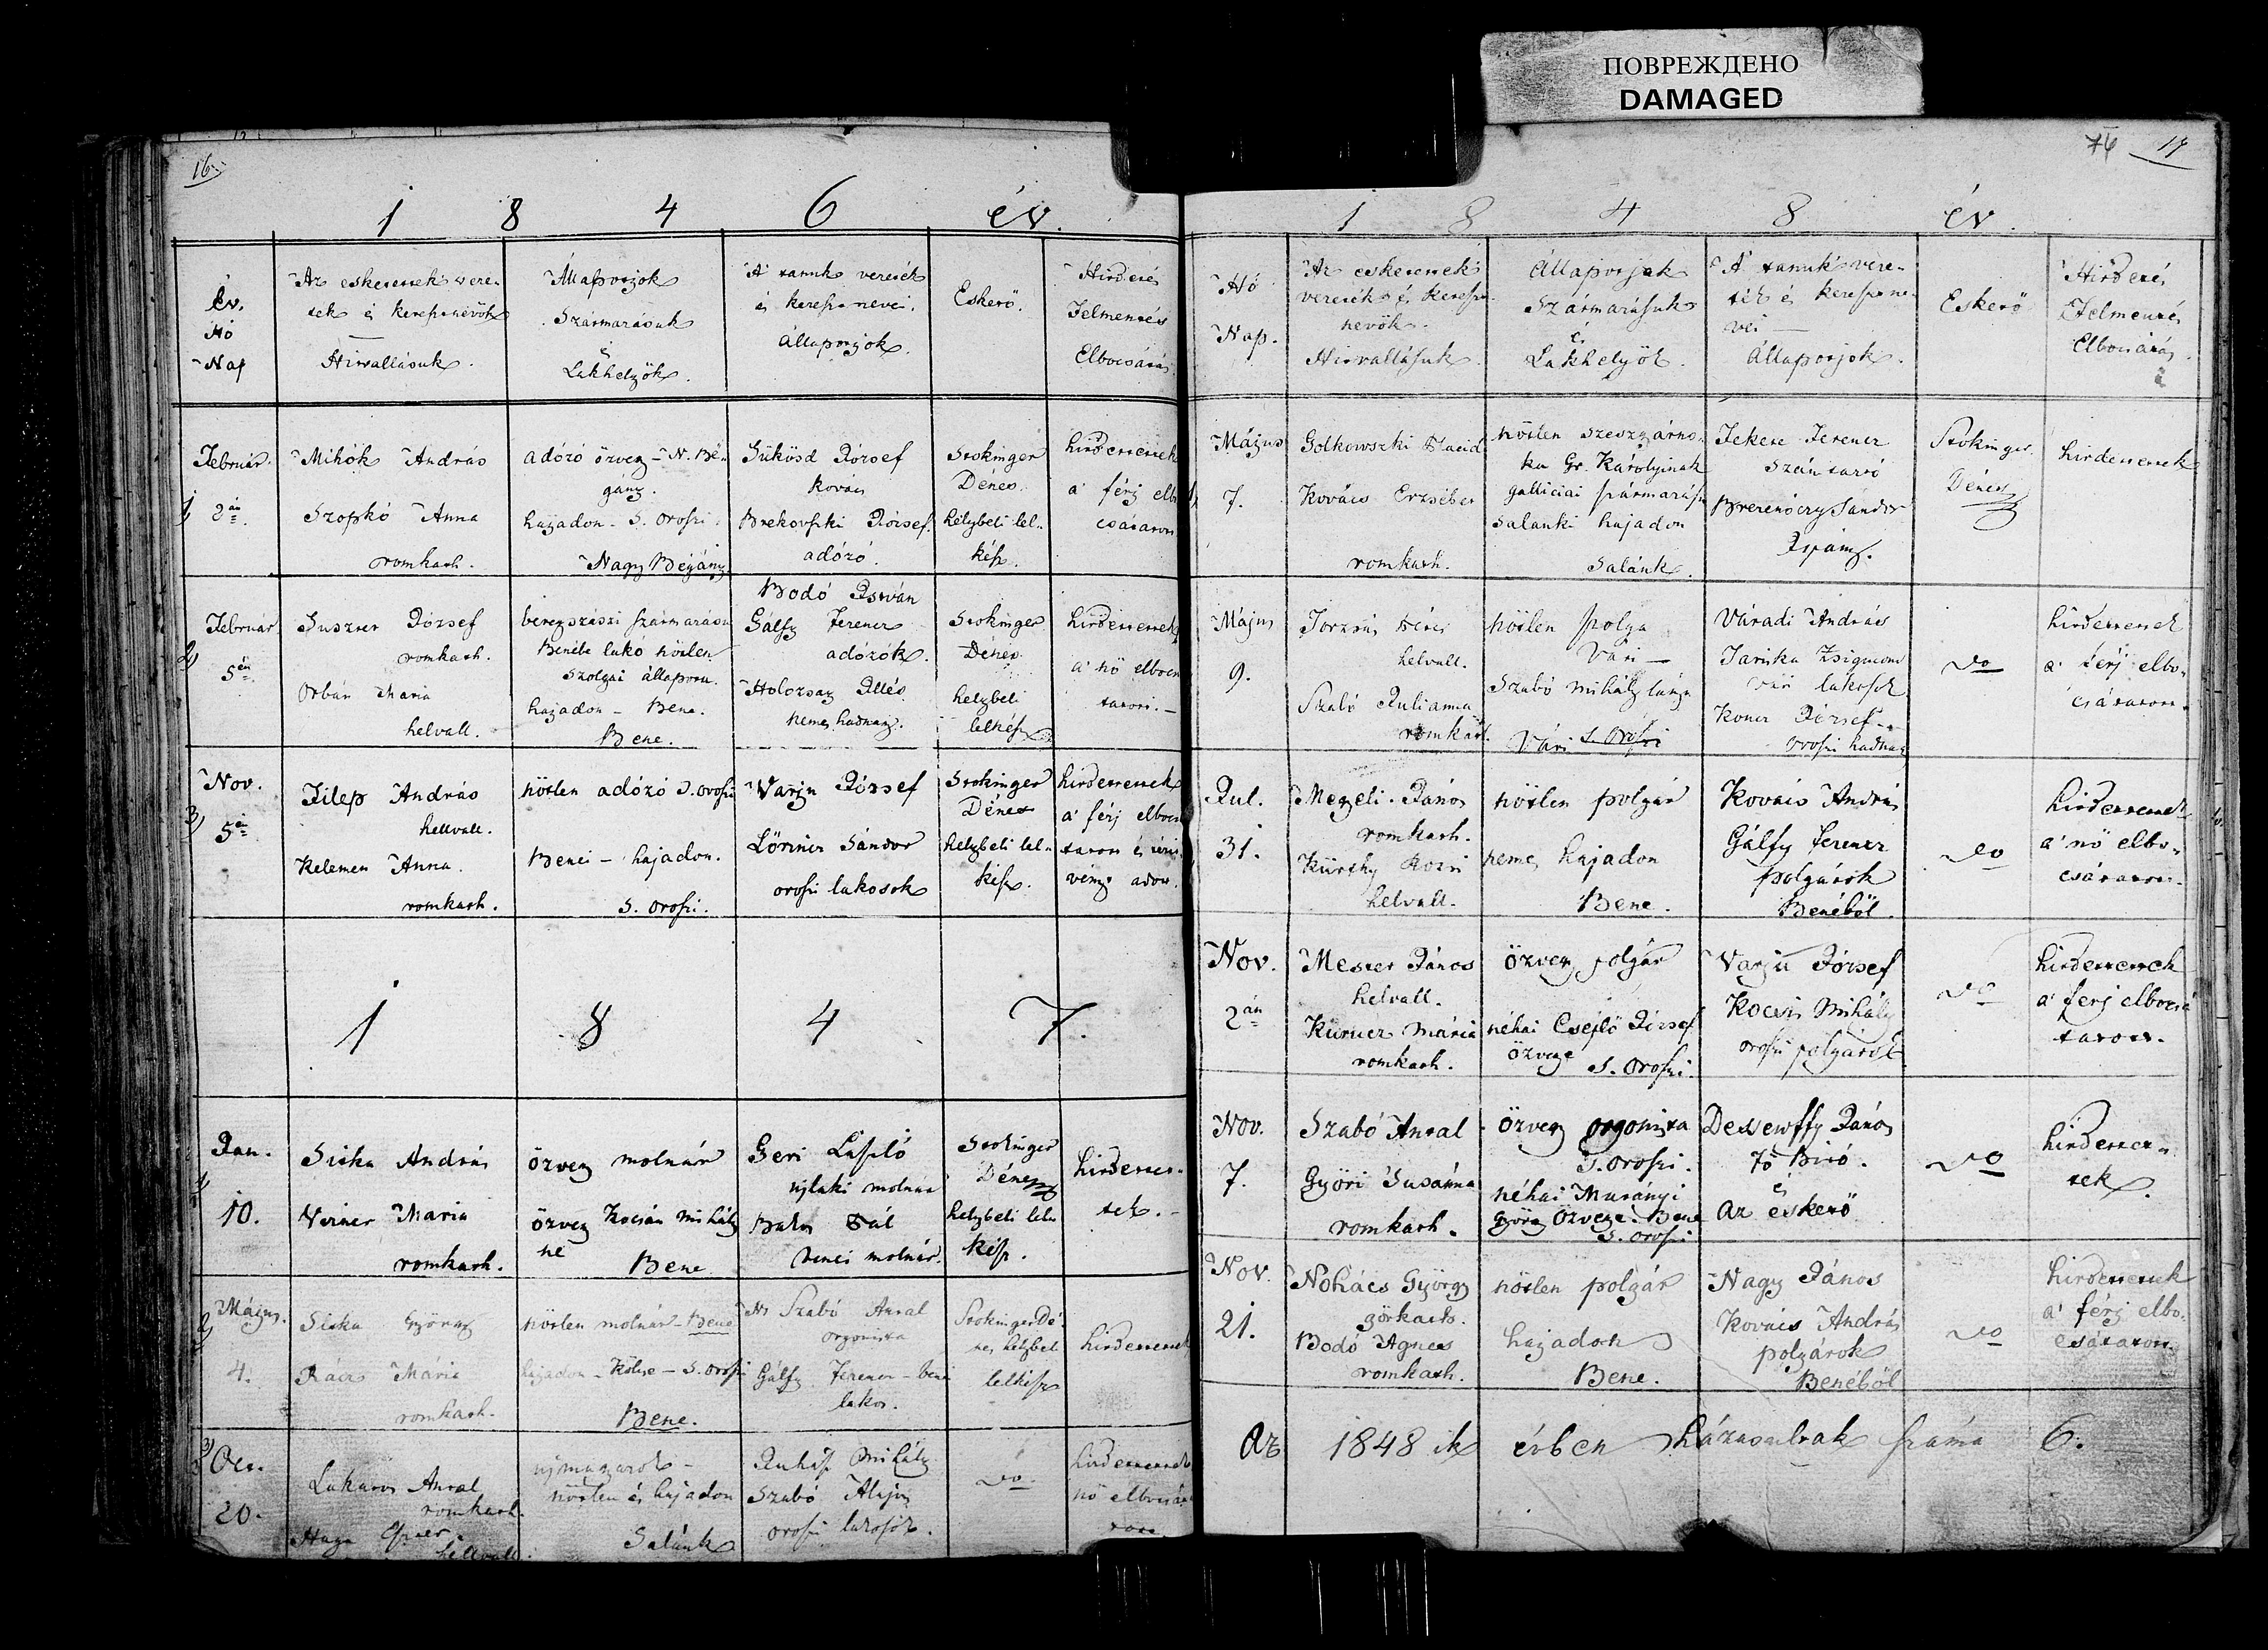 ПОВРЕЖДЕНО
DAMAGED
16.
1 8 4 6 év.
Év.
Hó
Nap
Az esketettek veze-
tek és keresztnevök
Hitvallásuk.
Állapotjok
Származásuk
és
Lakhelyök.
A' tanuk vezeték
és keresztnevei.
Állapotjok.
Eskető.
Hirdetés
Felmentés
Elbocsátás
Február.
1) 2án
Mihók András
Szopkó Anna
romkath.
adózó özvegy – N. Bé-
gany.
hajadon – S. Oroszi.
Nagy Bégány
Sükösd József
kovács
Brekovszki József
adózó.
Stokinger
Dénes.
helybeli lel-
kész.
hirdettettek
a' férj elbo
csátatott
Február
2) 5én
Suszter József
romkath.
Orbán Maria
helvall.
beregszászi származásu
Benébe lakó nőtlen
szolgai állapotu.
hajadon – Bene.
Bene.
Bodó István
Gálfy Ferencz
adózók.
Holozsay Illés
nemes hadnagy.
Stokinger
Dénes
helybeli
lelkész
hirdettettek
a' nő elbocs
tatott. –
Nov.
3) 5én
Filep András
hellvall.
Kelemen Anna.
romkath.
nőtlen adózó S. Oroszi
Benei – hajadon.
S. Oroszi.
Varju József
Lőrincz Sándor
oroszi lakosok
Stokinger
Dénes
helybeli lel-
kész.
hirdettettek
a' férj elbocs
tatott és
adott.
1 8 4 7.
Jan.
1) 10.
Siska András
Verner Maria
romkath.
özvegy molnár
özvegy Kocsán Mihály
né
Bene
Geri László
ujlaki molnár
Bakos Pál
benei molnár.
Stokinger
Dénes
helybeli lel-
kész.
hirdettet-
tek. –
Május.
2) 4.
Siska György
Rácz Mária
romkath.
nőtlen molnár – Bene
hajadon – Kölcse – S. Oroszi
Bene.
Szabó Antal
orgonista
Gálfy Ferencz – benei
lakos.
Stokinger Dé-
nes helybeli
lelkész
hirdettettek
3) Oct.
20.
Lukacs Antal
romkath.
hellvall.
ujmagyarok –
nőtlen és hajadon
Salánk
Juhász Mihály
Szabó Alajos
oroszi lakosok.
do.
hirdettettek
nő elbocsát
tott.
76 17
1 8 4 8 év.
Hó
Nap.
Az esketettek
vezeték és kereszt
nevök.
Hitvallásuk
Állapotjok
Származásuk
és
Lakhelyök.
A' tanuk veze-
ték és keresztne-
vei –
Állapotjok.
Eskető
Hirdetés
Felmentés
Elbocsátás.
Május
1) 7.
Golkowszki Placid
Kovács Erzsébet
romkath.
nőtlen szeszgárno-
ka Gr. Károlyinak
galliciai származásu
salanki hajadon
Salánk.
Fekete Ferencz
szántartó
Brezenóczy Sándor
Ispány.
Stokinger
Dénes
hirdettettek
Május
9.
helvall.
Szabó Julianna
romkath.
nőtlen polgá
Vári –
Szabó Mihály lánya
Vári S. Oroszi
Váradi András
Jariska Zsigmond
vári lakosok
Koncz József –
oroszi hadnagy
do
hirdettettek
a' férj elbo-
csátatott.
Jul.
31.
Mezeli János
romkath.
Kürthy Rozi
helvall.
nőtlen polgár
nemes hajadon
Bene.
Kovács András
Gálfy Ferencz
polgárok
Benéből.
do
hirdettettek
a' nő elbo-
csátatott.
Nov.
2án
Mester János
helvall.
Kurucz Mária
romkath.
özvegy polgár
néhai Csejtő József
özvegye
S. Oroszi.
Varju József
Kocsis Mihály
oroszi polgárok
do
hirdettettek
a' férj elbocsá
tatott.
Nov.
7.
Szabó Antal
Győri Susánna
romkath.
özvegy orgonista
S. Oroszi.
néhai Murányi
György özvegye. Bene
S. Oroszi
Dessewffy János
Fő Biró.
és
Az eskető
do
hirdettet-
tek.
Nov.
21.
Nohács György
görkath.
Bodó Agnes
romkath.
nőtlen polgár
hajadon
Bene.
Nagy János
Kovács András
polgárok
Benéből
do
hirdettettek
a' férj elbo-
csátatott.
Az 1848 ik évben házasultak száma 6.